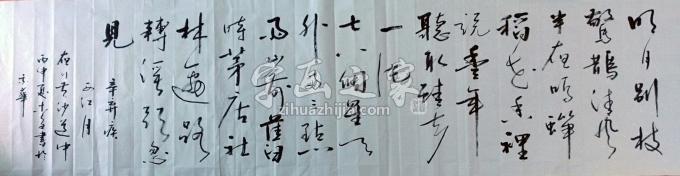 明月别枝
驚鵲清風
半夜鳴蟬
稻花香裡
説豊年
聽取蛙声
一片
七八個星天
外两三點
雨山前舊
時茅店社
林邊路
轉溪頭忽
見
辛弃疾
西江月
夜行黄沙道中
丙申夏書於
京華
字画之家
zihuazhijia.com